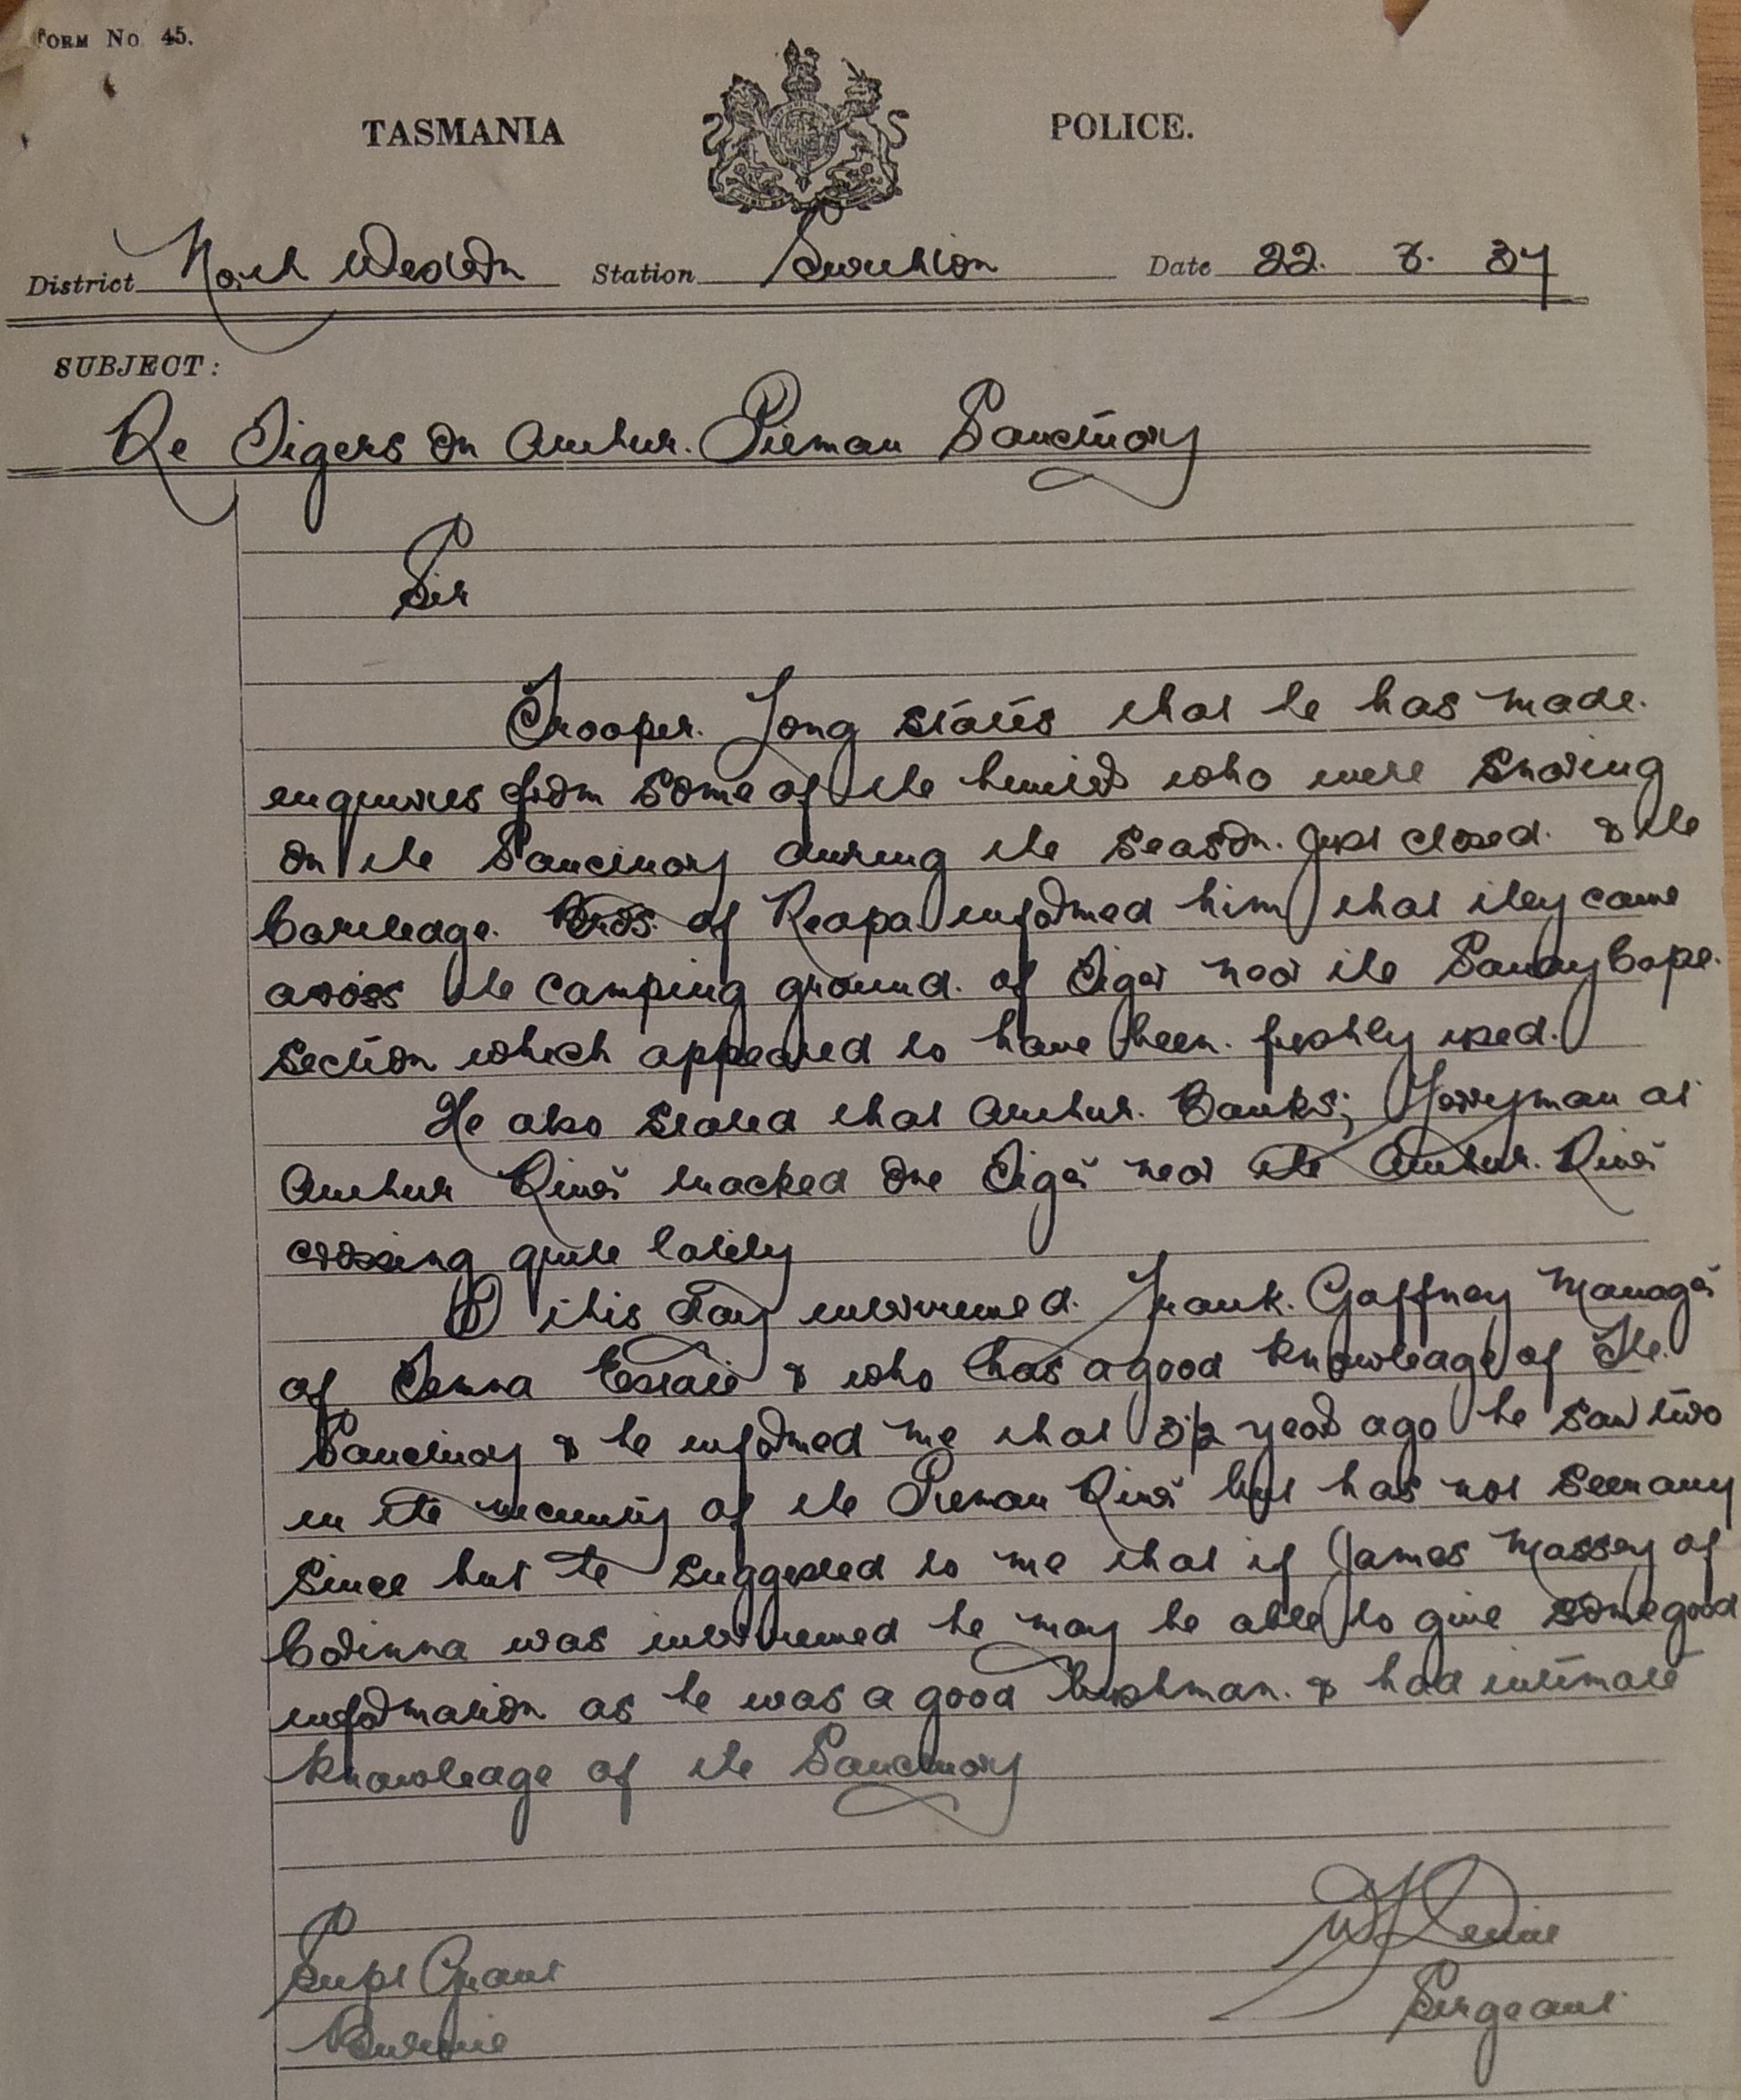 FORM No 45.
TASMANIA POLICE.
District North Western Station Date 22. 8. 37
SUBJECT:
Re Tigers on Arthur. Pieman Sanctuary
Sir
Trooper. Long states that he has made.
enquiries from some of the hunters who were snaring
on the Sanctuary during the season. just closed. & the
Cartledge. Bros. of Reapa informed him that they came
across the camping ground. of Tiger near the Sandy Cape.
section which appeared to have been. freshly used.
He also stated that Arthur. Banks; Ferryman at
Arthur River tracked one Tiger near the Arthur. River
crossing quite lately
I this day interviewed. Frank. Gaffney Manager
of Temma Estate & who has a good knowledge of the.
Sanctuary & he informed me that 3 1/2 years ago he saw two
in the vicinity of the Pieman River but has not seen any
since but he suggested to me that if James Massey of
Corinna was interviewed he may be able to give some good
information as he was a good bushman. & had intimate
knowledge of the Sanctuary
Supt Grant
Burnie
Sergeant.